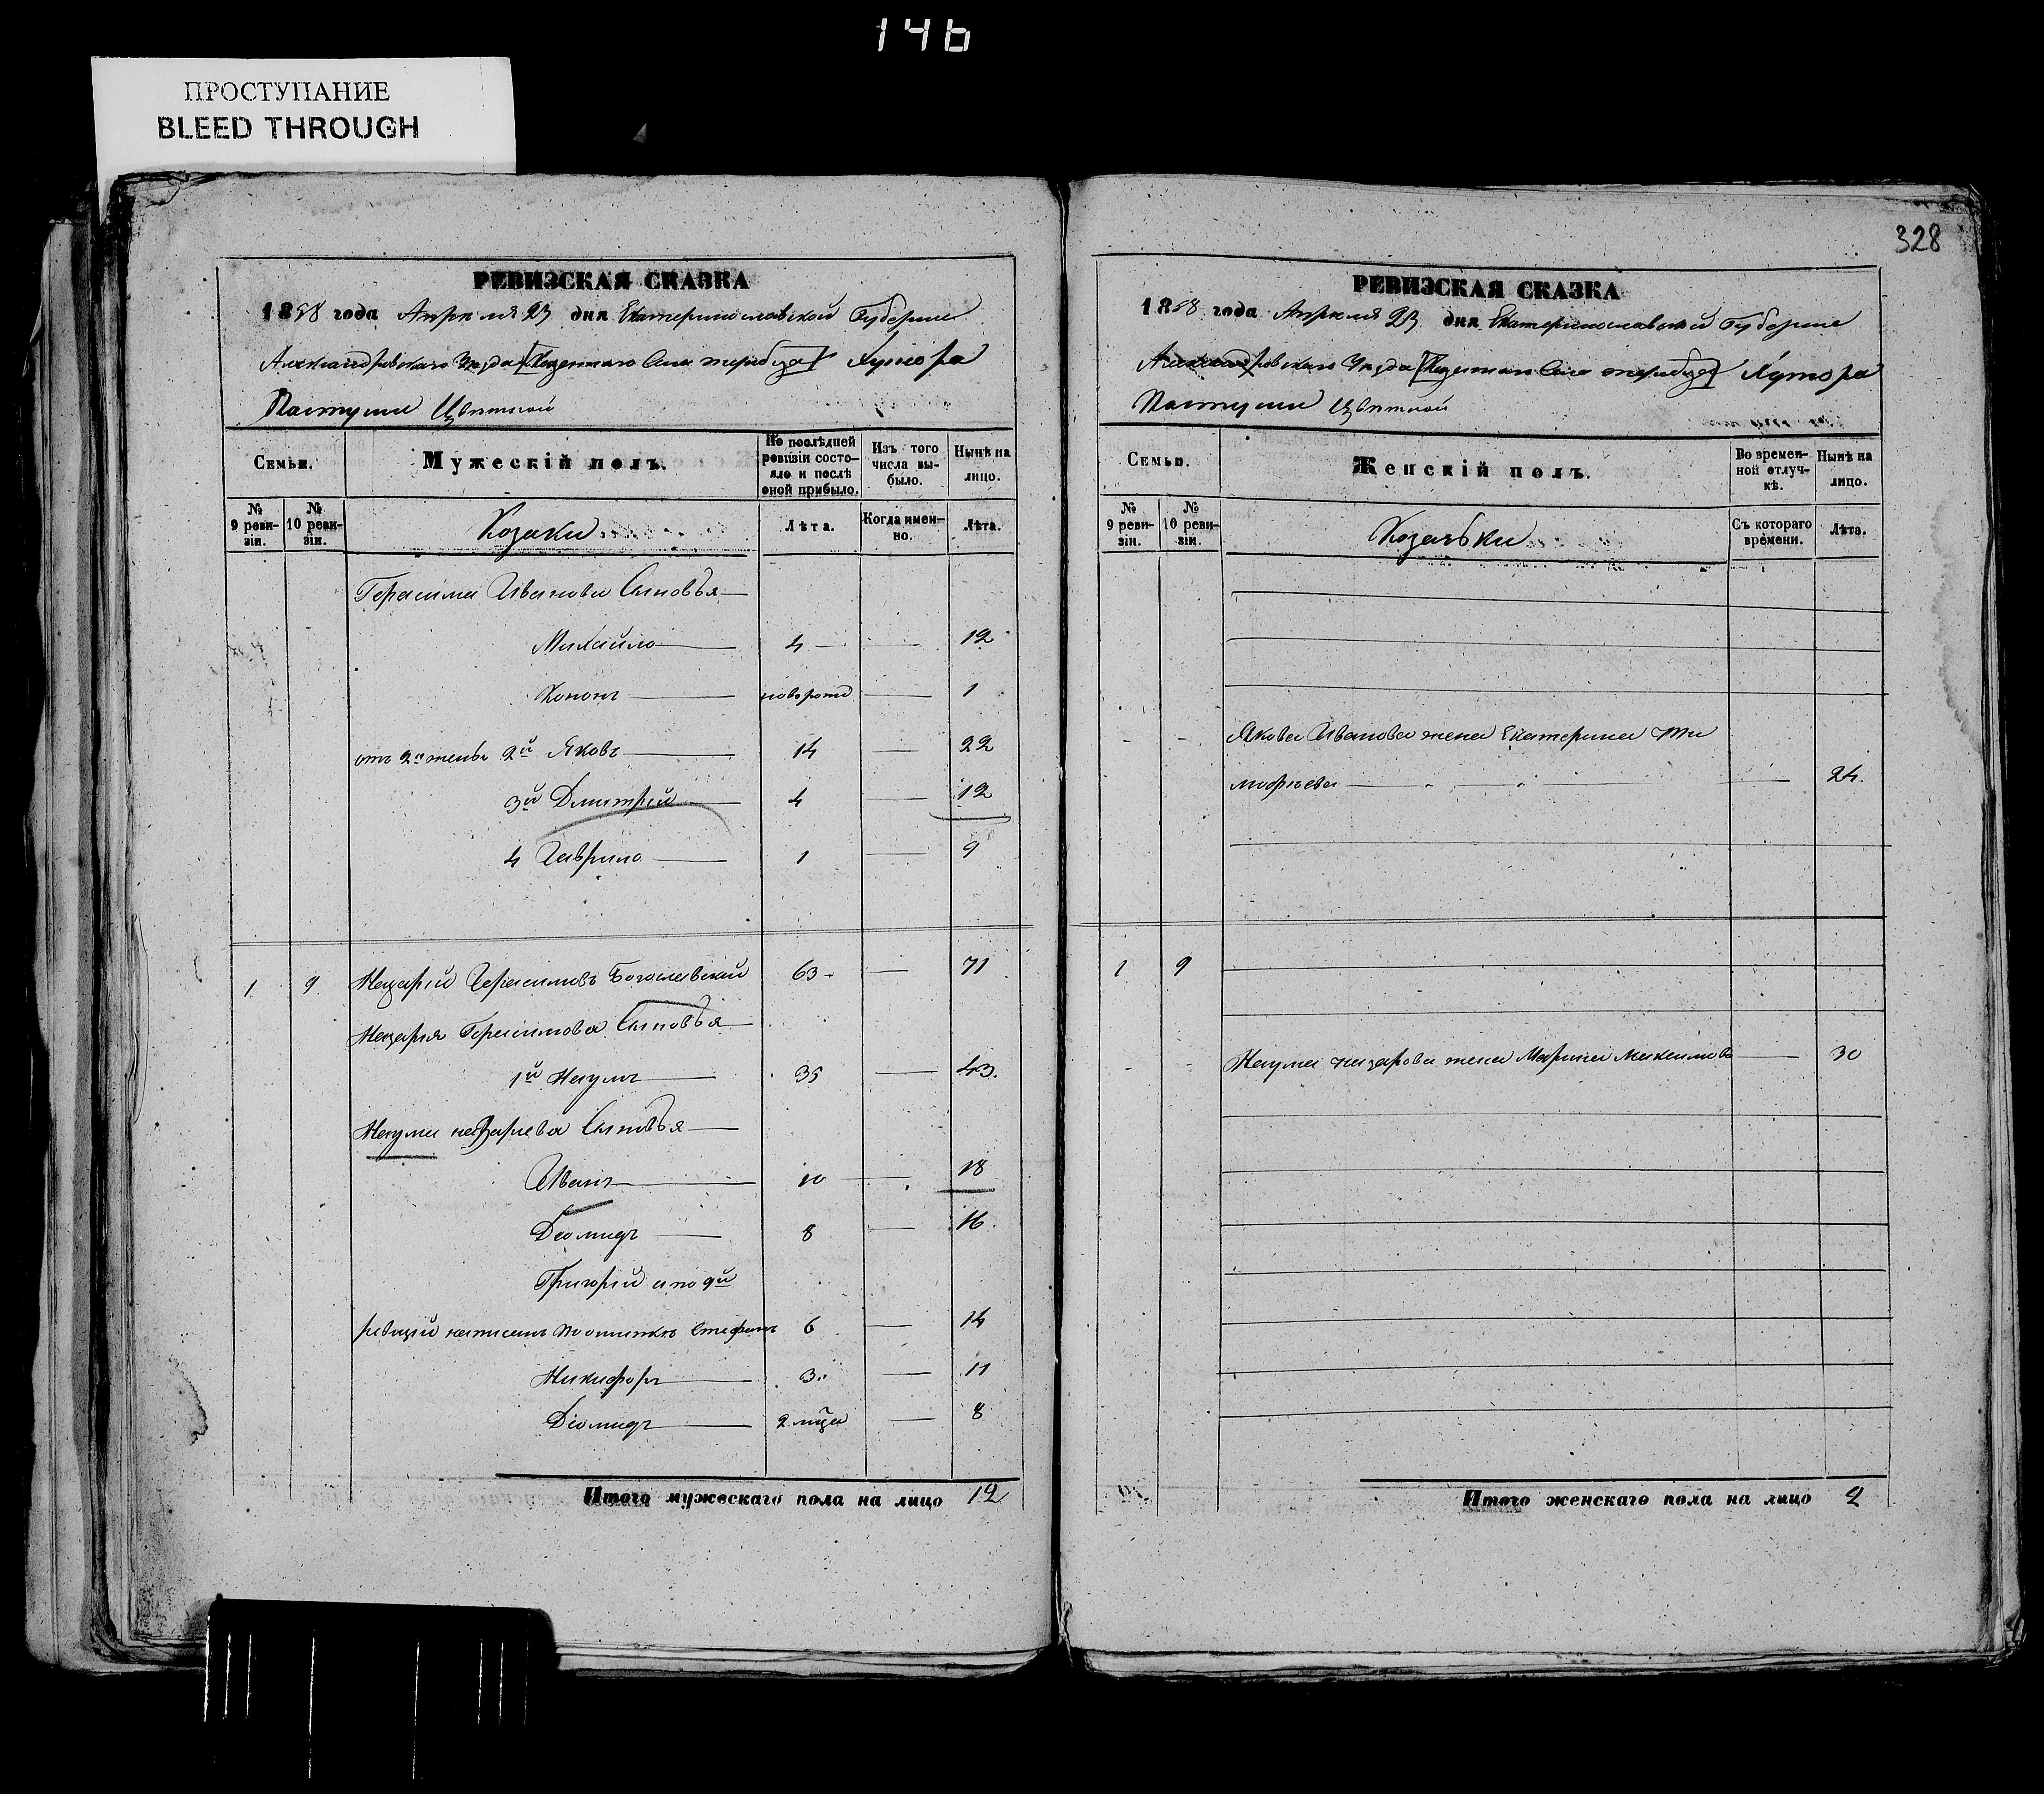 146
ПРОСТУПАНИЕ
BLEED THROUGH
РЕВИЗСКАЯ СКАЗКА
1858 года Апреля 23 дня Екатеринославской Губернии
Александровскаго Уезда Казеннаго Села Хутора
Цвятной
Семьи.
Мужескій полъ.
По послѣдней ревизіи состояло и послѣ оной прибыло.
Изъ того числа выбыло.
Нынѣ на лицо.
№ 9 ревизіи.
№ 10 ревизіи.
Козаки
Лѣта.
Когда именно.
Лѣта.
Герасима Иванова Сыновья
Михайло 4 12
Кононъ новорожд 1
отъ 2й жены 2й Яковъ 14 22
3й Дмитрій 4 12
4 Гаврило 1 9
1 9 Назарій Герасимовъ Богославскій 63 71
Назарія Герасимова Сыновья
1й Наумъ 35 43
Наума Назарьева Сыновья
Иванъ 10 18
Діомидъ 8 16
Григорій а по 9й
ревизіи написанъ Стефанъ 6 14
Никифоръ 3 11
Діомидъ 2 мца 8
Итого мужескаго пола на лицо 12
328
РЕВИЗСКАЯ СКАЗКА
1858 года Апреля 23 дня Екатеринославской Губернии
Александровскаго Уезда Казеннаго Села Хутора
Цвятной
Семьи.
Женскій полъ.
Во временной отлучкѣ.
Нынѣ на лицо.
№ 9 ревизіи.
№ 10 ревизіи.
Козачьки
Съ котораго времени.
Лѣта.
Якова Иванова жена Екатерина Ти
мофѣева 24
1 9
Наума Назарова жена Марина Максимова 30
Итого женскаго пола на лицо 2